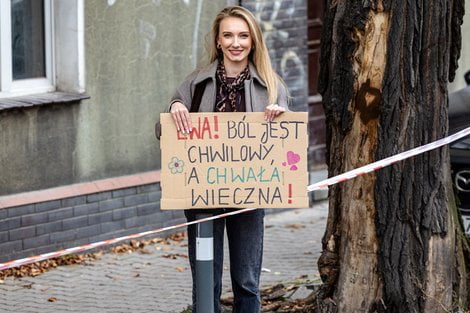 EWA! BÓL JEST
CHWILOWY,
A CHWAŁA
WIECZNA!